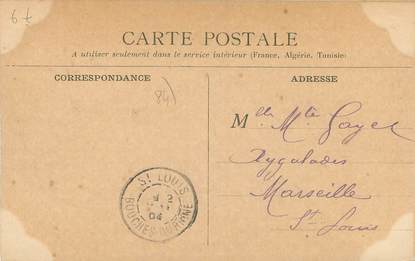 6f
CARTE POSTALE
A utiliser seulement dans le service intérieur (France, Algérie, Tunisie)
CORRESPONDANCE
ADRESSE
84)
Mlle Mte Gayet
Aygalades
Marseille
St Louis
ST LOUIS
04
BOUCHES-DU-RHONE